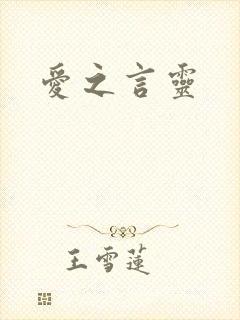 愛之言靈
王雪蓮